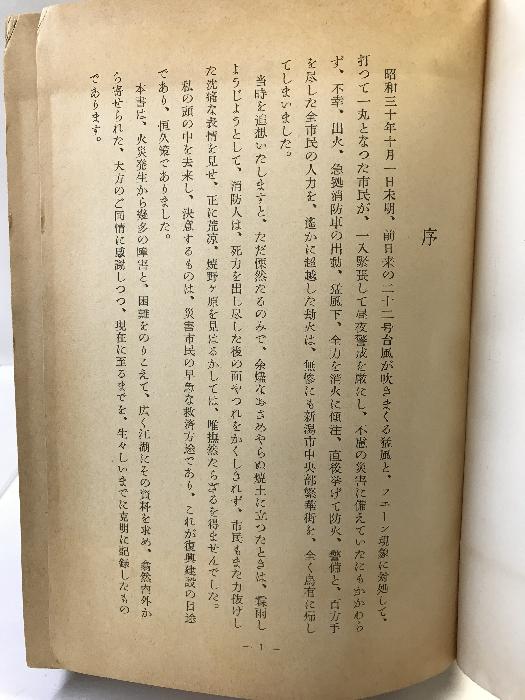 序
昭和三十年十月一日未明、前日来の二十二号台風が吹きまくる猛風と、フエーン現象に対処して、
打つて一丸となつた市民が、一入緊張して昼夜警戒を厳にし、不慮の災害に備えていたにもかかわら
ず、不幸、出火、急拠消防車の出動、猛風下、全力を消火に傾注、直後挙げて防火、警備と、百方手
を尽した全市民の人力を、遙かに超越した劫火は、無惨にも新潟市中央部繁華街を、全く烏有に帰し
てしまいました。
当時を追想いたしますと、ただ慄然たるのみで、余燼なおさめやらぬ焼土に立つたときは、霖雨し
ようじようとして、消防人は、死力を出し尽した後の面やつれをかくしきれず、市民もまた力抜けし
た沈痛な表情を見せ、正に荒凉、焼野ヶ原を見はるかしては、唯撫然たらざるを得ませんでした。
私の頭の中を去来し、決意するものは、災害市民の早急な救済方途であり、これが復興建設の目途
であり、恒久策でありました。
本書は、火災発生から幾多の障害と、困難をのりこえて、広く江湖にその資料を求め、翕然内外か
ら寄せられた、大方のご同情に感謝しつつ、現在に至るまでを、生々しいまでに克明に記録したもの
であります。
— 1 —